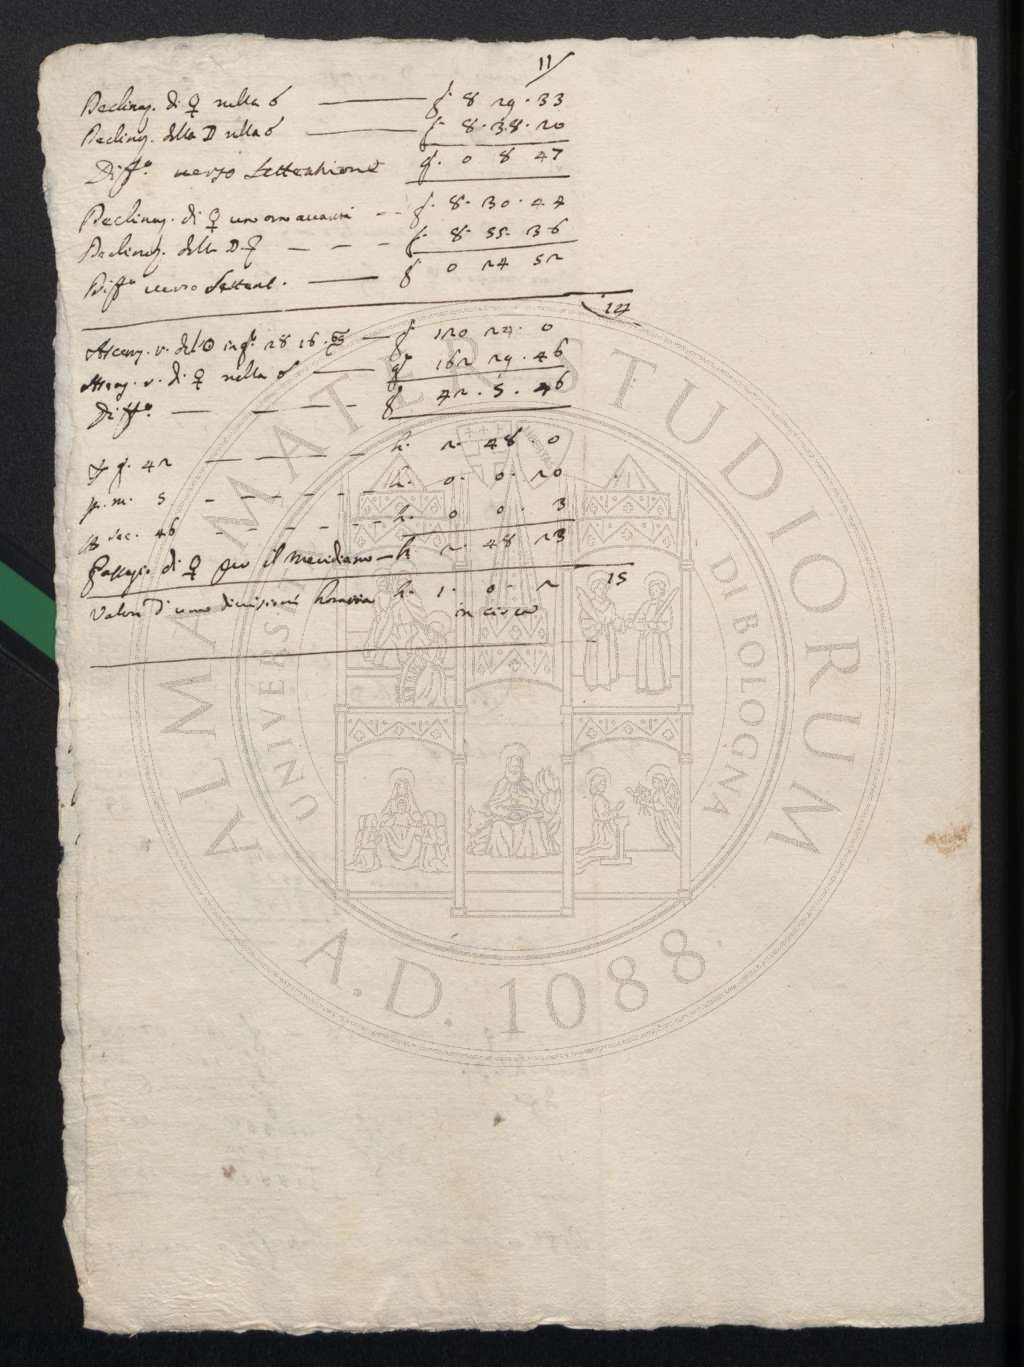 11/
Declinaz. di ♀ nella ☌ — g. 8 29. 33
Declinaz. della ☽ nella ☌ — g. 8. 38. 20
Diff.ª verso Settentrione g. 0 8 47
Declinaz. di ♀ avanti — g. 8. 30. 44
Declinaz. della ☽ — — — g. 8. 55. 36
Diff.ª verso Settent. — g 0 24 52
14
Ascenz. r. del ☉ in g. 28 16. ♋ — g. 120 24. 0
Ascenz. r. di ♀ nella ☌ — g. 162 29. 46
Diff.ª — — — g 42. 5. 46
g. 42 — — — — h. 2. 48 0
p. m. 5 — — — — h. 0. 0. 20
p. sec. 46 — — — — h. 0 0. 3
Passagio di ♀ per il Meridiano — h 2. 48 23
15
Valor d'una horaria h. 1. 0. 2
in circa
ALMA MATER STUDIORUM
UNIVERSITÀ DI BOLOGNA
A.D. 1088